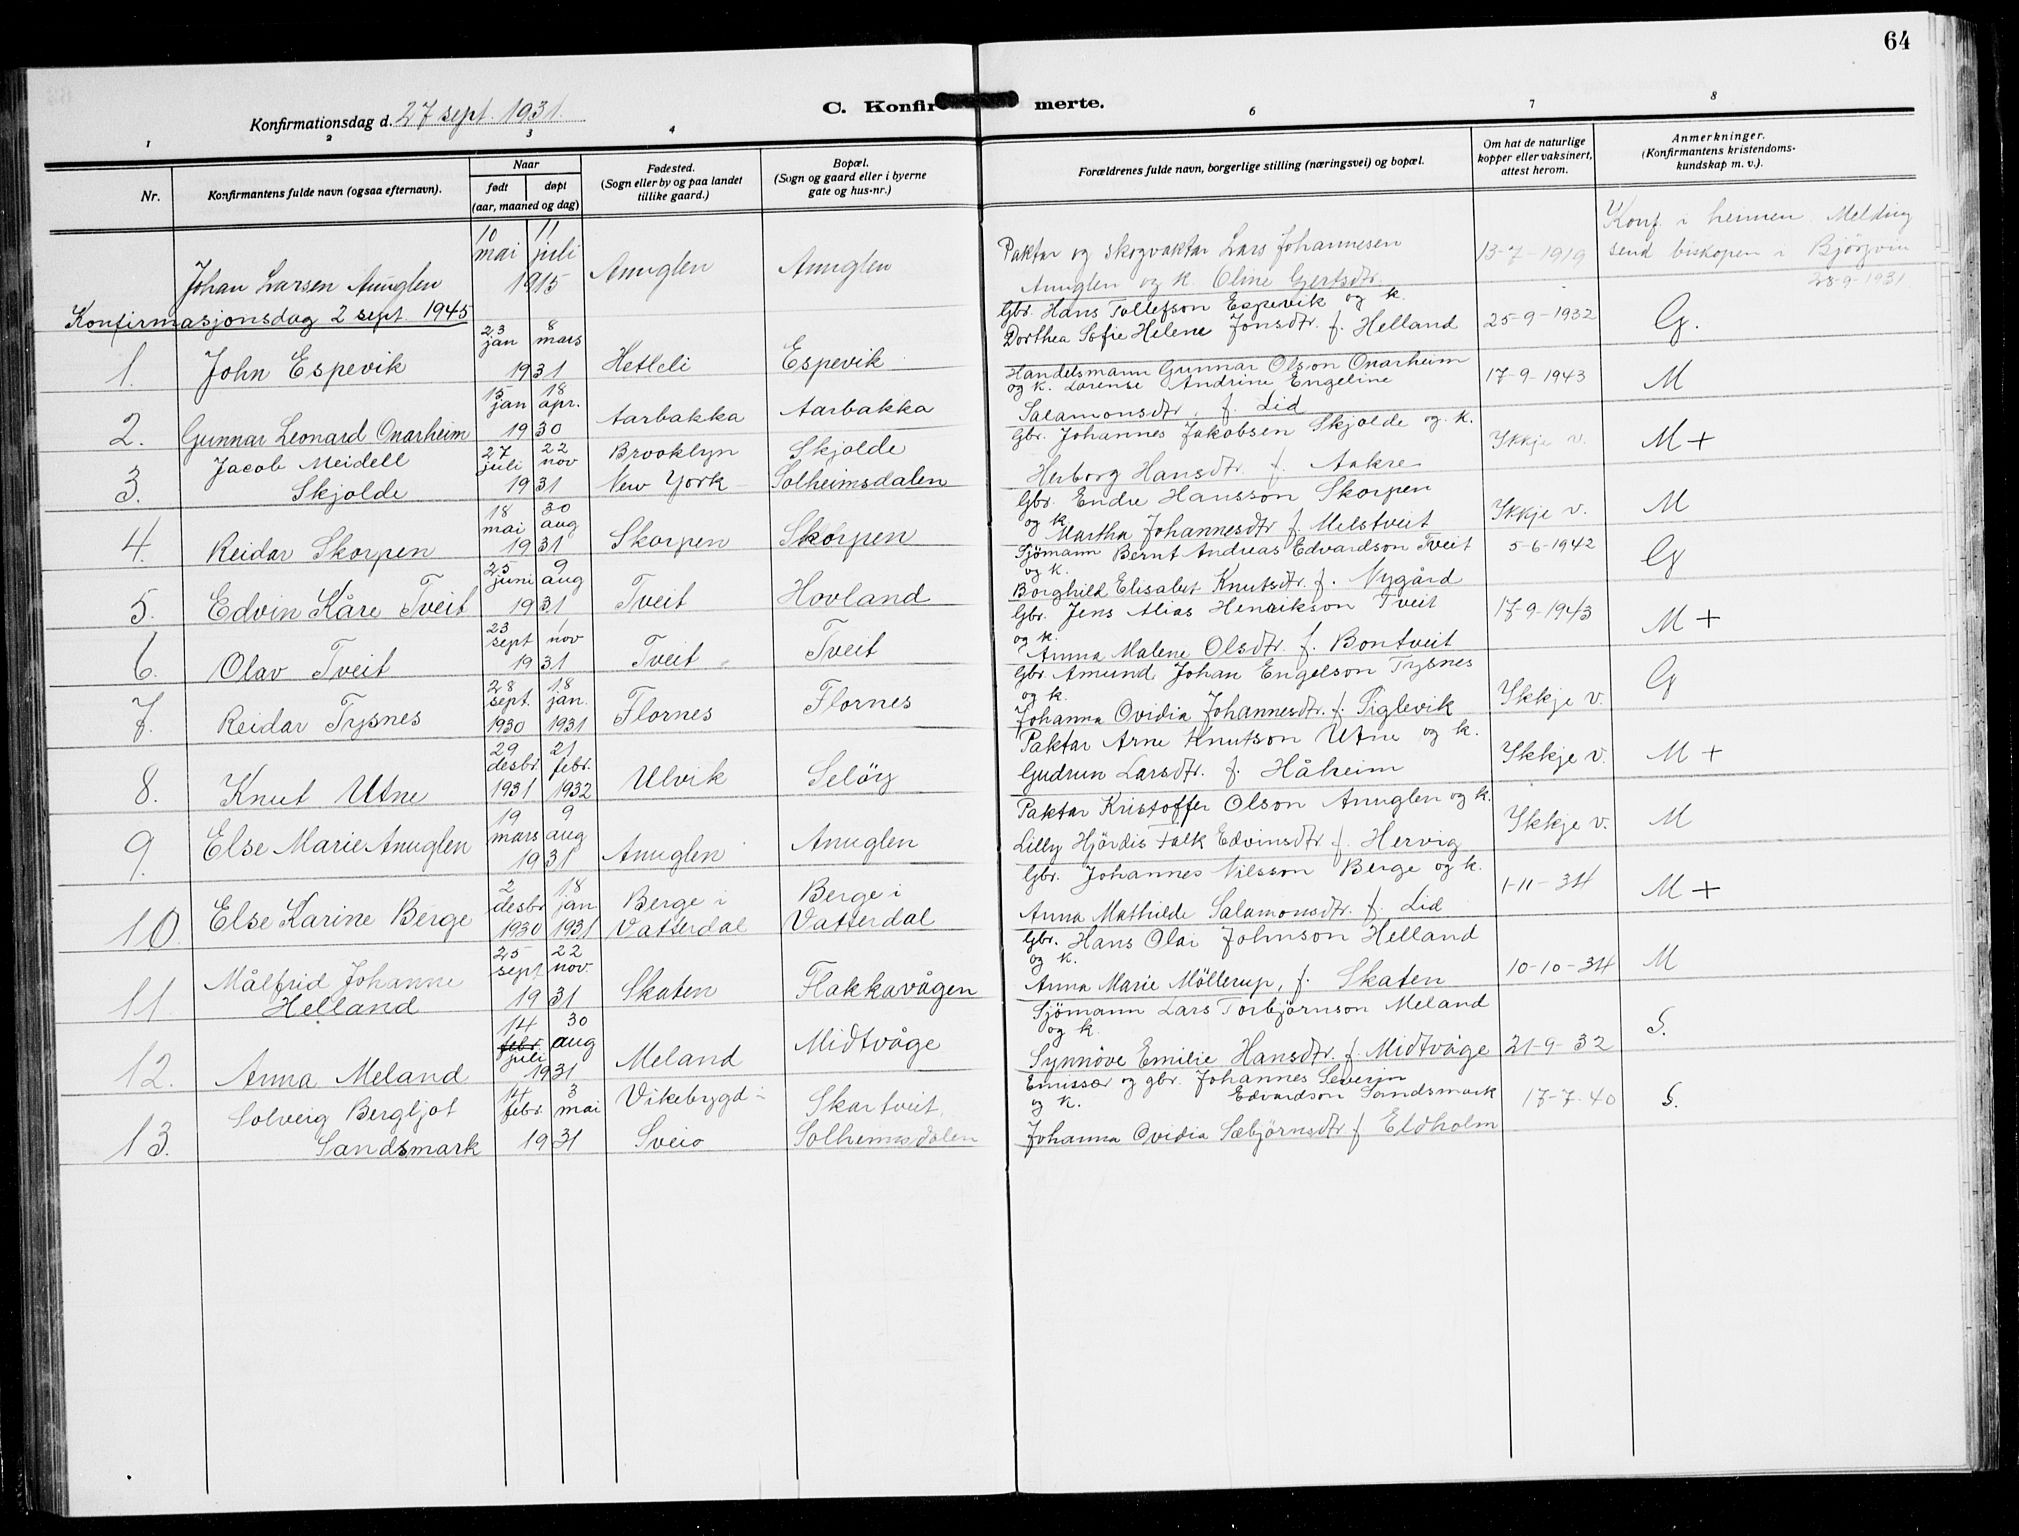 64
C. Konfirmerte.
Konfirmationsdag d. 27 sept. 1931.
1 2 3 4 6 7 8
Nr.
Konfirmantens fulde navn (ogsaa efternavn).
Naar
født døpt
(aar, maaned og dag)
Fødested.
(Sogn eller by og paa landet
tillike gaard.)
Bopæl.
(Sogn og gaard eller i byerne
gate og hus-nr.)
Forældrenes fulde navn, borgerlige stilling (næringsvei) og bopæl.
Om hat de naturlige
kopper eller vaksinert,
attest herom.
Anmerkninger.
(Konfirmantens kristendoms-
kundskap m. v.).
Johan Larsen Anuglen
10 mai 11 juli
1915
Anuglen
Anuglen
Paktar og skogvaktar Lars Johannesen
Anuglen og k. Oline Gertsdtr.
13-7-1919
Konf. i heimen. Melding
send biskopen i Bjørgvin
28-9-1931
Konfirmasjonsdag 2 sept. 1945
1. John Espevik
23 jan 8 mars
1931
Hetleli
Espevik
Gbr. Hans Tollefson Espevik og k.
Dorthea Sofie Helene Jonsdtr. f. Helland
25-9-1932
G.
2. Gunnar Leonard Onarheim
15 jan 18 apr.
1930
Aarbakka
Aarbakka
Handelsmann Gunnar Olson Onarheim
og k. Lorense Andrine Engeline
Salamonsdtr. f. Lid
17-9-1943
M
3. Jacob Meidell
Skjolde
27 juli 22 nov
1931
Brooklyn
New York
Skjolde
Solheimsdalen
Gbr. Johannes Jakobsen Skjolde og k.
Herborg Hansdtr. f. Aakre
Ikkje v.
M +
4. Reidar Skorpen
18 mai 30 aug
1931
Skorpen
Skorpen
Gbr. Endre Hansson Skorpen
og k.
Martha Johannesdtr f. Melstveit
Ikkje v.
M
5. Edvin Kåre Tveit
25 juni 9 aug
1931
Tveit
Hovland
Sjømann Bernt Andreas Edvardson Tveit
og k.
Borghild Elisabet Knutsdtr. f. Nygård
5-6-1942
G
6. Olav Tveit
23 sept 1 nov
1931
Tveit
Tveit
Gbr. Jens Alias Henrikson Tveit
og k.
Anna Malene Olsdtr. f. Bontveit
17-9-1943
M +
7. Reidar Tysnes
28 sept. 18 jan.
1930 1931
Flornes
Flornes
Gbr. Amund Johan Engelson Tysnes
og k.
Johanna Ovidia Johannesdtr. f. Siglevik
Ikkje v.
G
8. Knut Utne
29 desbr. 21 febr.
1931 1932
Ulvik
Seløy
Paktar Arne Knutson Utne og k.
Gudrun Larsdtr. f. Håheim
Ikkje v.
M +
9. Else Marie Anuglen
19 mars 9 aug
1931
Anuglen
Anuglen
Paktar Kristoffer Olson Anuglen og k.
Lilly Hjördis Falk Edvinsdtr f. Hervig
Ikkje v.
M
10. Else Karine Berge
2 desbr 18 jan.
1930 1931
Berge i
Vatterdal
Berge i
Vatterdal
Gbr. Johannes Nilsson Berge og k.
Anna Mathilde Salamonsdtr. f. Lid
1-11-34
M +
11. Målfrid Johanne
Helland
25 sept 22 nov.
1931
Skaten
Flakkavågen
Gbr. Hans Olai Johnson Helland
og k.
Anna Marie Möllerup, f. Skaten
10-10-34
M
12. Anna Meland
14 febr. juli 30 aug
1931
Meland
Midtvåge
Sjømann Lars Torbjørnson Meland
og k.
Synnöve Emilie Hansdtr. f. Midtvåge
21-9-32
S.
13. Solveig Bergljot
Sandsmark
14 febr 3 mai
1931
Vikebygd i
Sveio
Skartveit,
Solheimsdalen
Emissær og gbr. Johannes Severin
og k. Edvardson Sandsmark
Johanna Ovidia Sæbjørnsdtr f Eldholm
17-7-40
S.